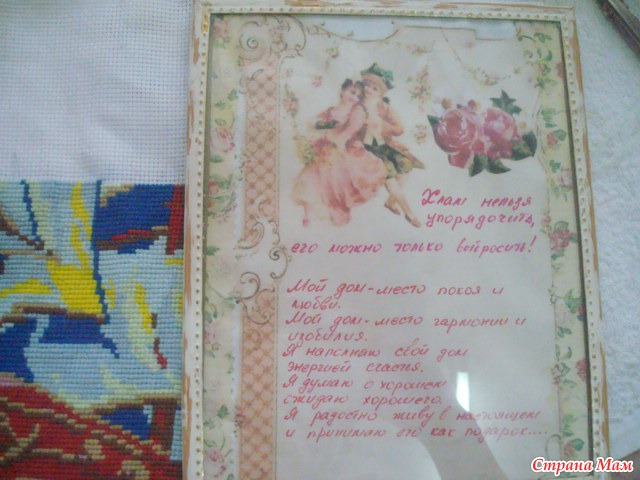 Хлам нельзя
упорядочить,
его можно только выбросить!
Мой дом-место покоя и
любви.
Мой дом-место гармонии и
изобилия.
Я наполняю свой дом
энергией счастья.
Я думаю о хорошем
ожидаю хорошего.
Я радостно живу в настоящем
и принимаю его как подарок....
Страна Мам